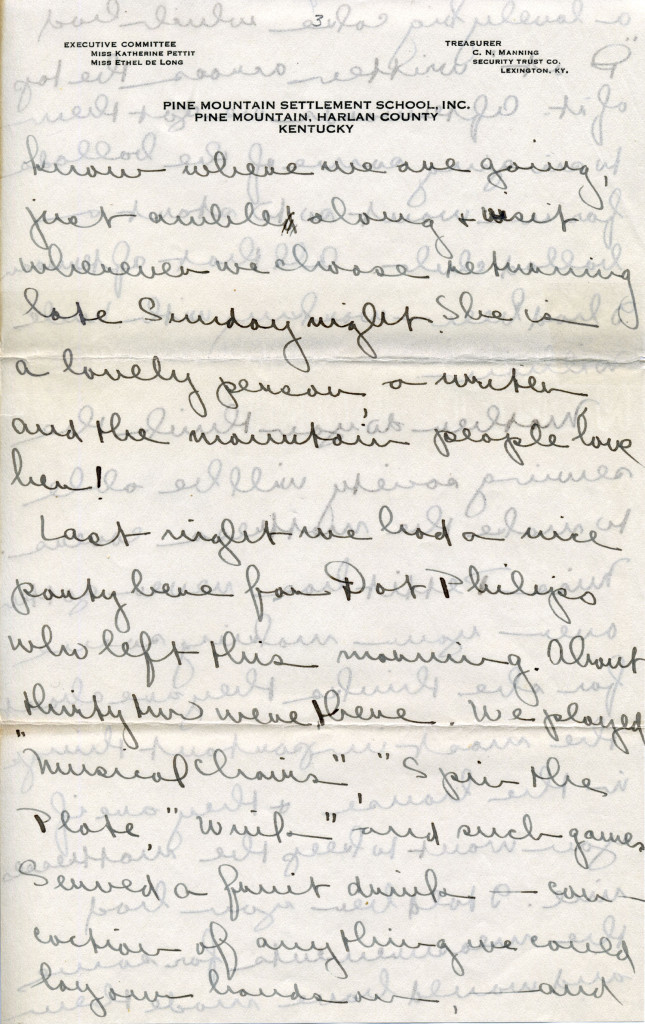 3
EXECUTIVE COMMITTEE
MISS KATHERINE PETTIT
MISS ETHEL DE LONG
TREASURER
C. N. MANNING
SECURITY TRUST CO.
LEXINGTON, KY.
PINE MOUNTAIN SETTLEMENT SCHOOL, INC.
PINE MOUNTAIN, HARLAN COUNTY
KENTUCKY
know where we are going,
just amble along + visit
wherever we choose returning
late Sunday night. She is
a lovely person, a writer,
and the mountain people love
her!
Last night we had a nice
party here for Dot Philips
who left this morning. About
thirty two were there. We played
"Musical Chairs", "Spin the
Plate," "Wink" and such games
Served a fruit drink – con
coction of anything we could
lay our hands on, – and